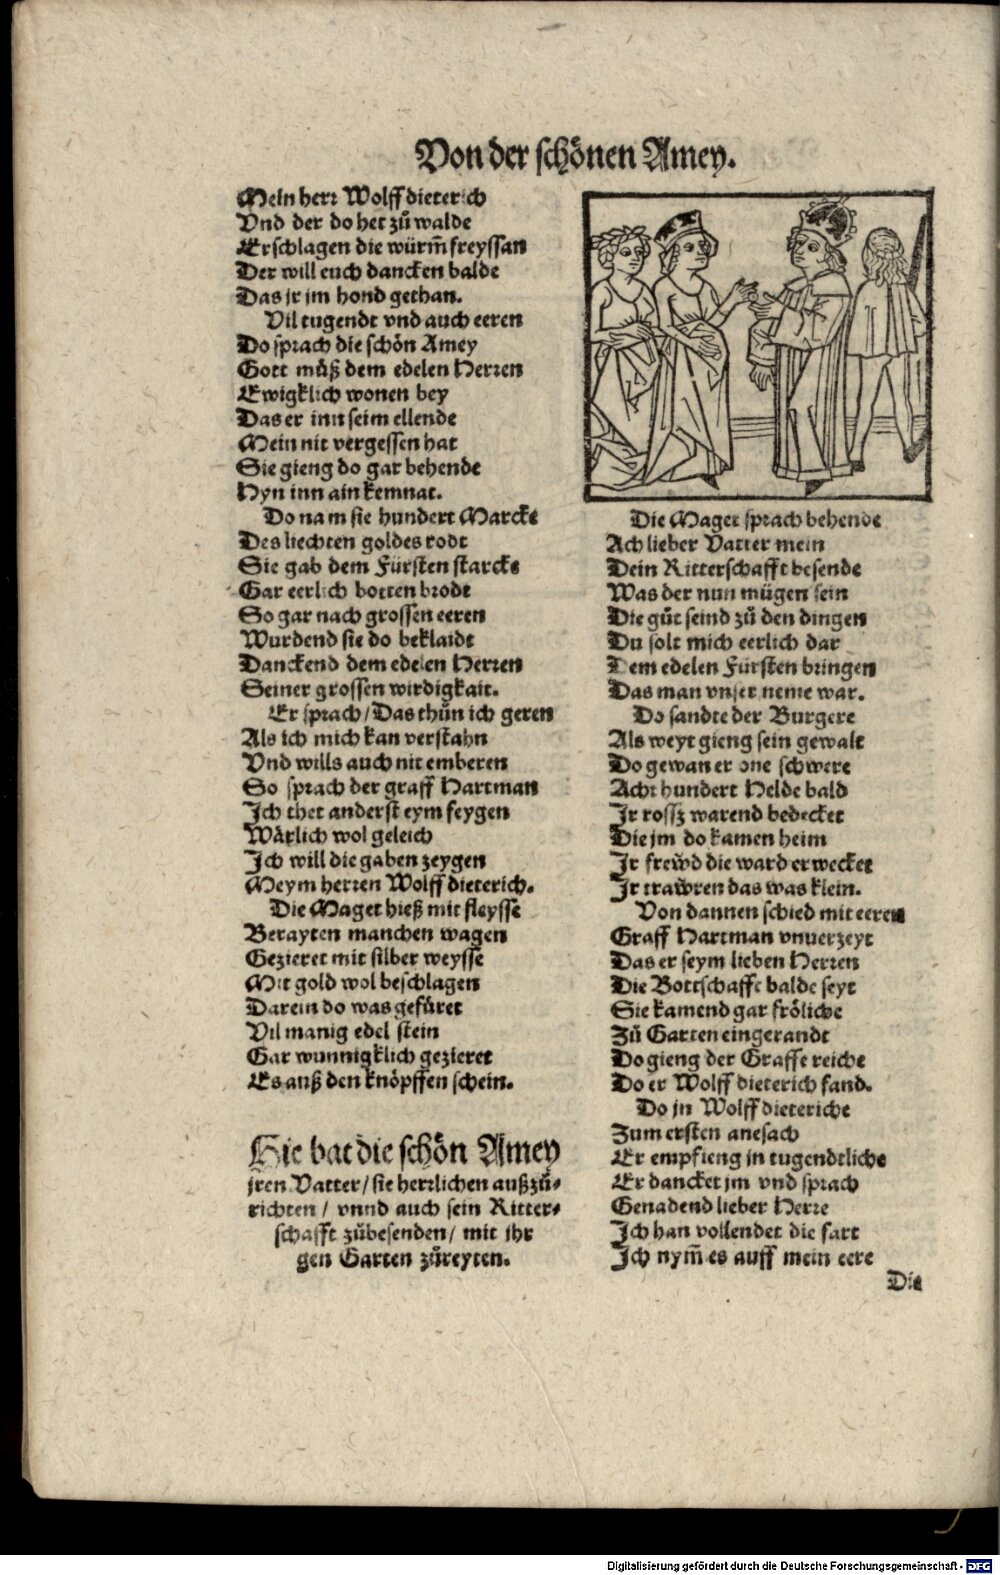 Von der schönen Amey.
Mein herr Wolff dieterich
Vnd der do het zů walde
Erschlagen die würm̃ freyssan
Der will euch dancken balde
Das jr jm hond gethan.
Vil tugendt vnd auch eeren
Do sprach die schön Amey
Gott můß dem edelen Herren
Ewigklich wonen bey
Das er inn seim ellende
Mein nit vergessen hat
Sie gieng do gar behende
Hyn inn ain kemnat.
Do nam sie hundert Marcke
Des liechten goldes rodt
Sie gab dem Fürsten starcke
Gar eerlich botten brodt
So gar nach grossen eeren
Wurdend sie do beklaidt
Danckend dem edelen Herren
Seiner grossen wirdigkait.
Er sprach / Das thůn ich geren
Als ich mich kan verstahn
Vnd wills auch nit emberen
So sprach der graff Hartman
Ich thet anderst eym feygen
Wärlich wol geleich
Ich will die gaben zeygen
Meym herren Wolff dieterich.
Die Maget hieß mit fleysse
Berayten manchen wagen
Gezieret mit silber weysse
Mit gold wol beschlagen
Darein do was gefüret
Vil manig edel stein
Gar wunnigklich gezieret
Es auß den knöpffen schein.
Hie bat die schön Amey
jren Vatter / sie herrlichen außzů-
richten / vnnd auch sein Ritter-
schafft zůbesenden / mit ihr
gen Garten zůreyten.
Die Maget sprach behende
Ach lieber Vatter mein
Dein Ritterschafft besende
Was der nun mügen sein
Die gůt seind zů den dingen
Du solt mich eerlich dar
Dem edelen Fürsten bringen
Das man vnser neme war.
Do sandte der Burgere
Als weyt gieng sein gewalt
Do gewan er one schwere
Acht hundert Helde bald
Ir rossz warend bedecket
Die jm do kamen heim
Ir frewͤd die ward erwecket
Ir trawͤren das was klein.
Von dannen schied mit eeren
Graff Hartman vnuerzeyt
Das er seym lieben Herren
Die Bottschafft balde seyt
Sie kamend gar fröliche
Zů Garten eingerandt
Do gieng der Graffe reiche
Do er Wolff dieterich fand.
Do jn Wolff dieteriche
Zum ersten anesach
Er empfieng jn tugendtliche
Er dancket jm vnd sprach
Genadend lieber Herre
Ich han vollendet die fart
Ich nym̃ es auff mein eere
Die
Digitalisierung gefördert durch die Deutsche Forschungsgemeinschaft - DFG